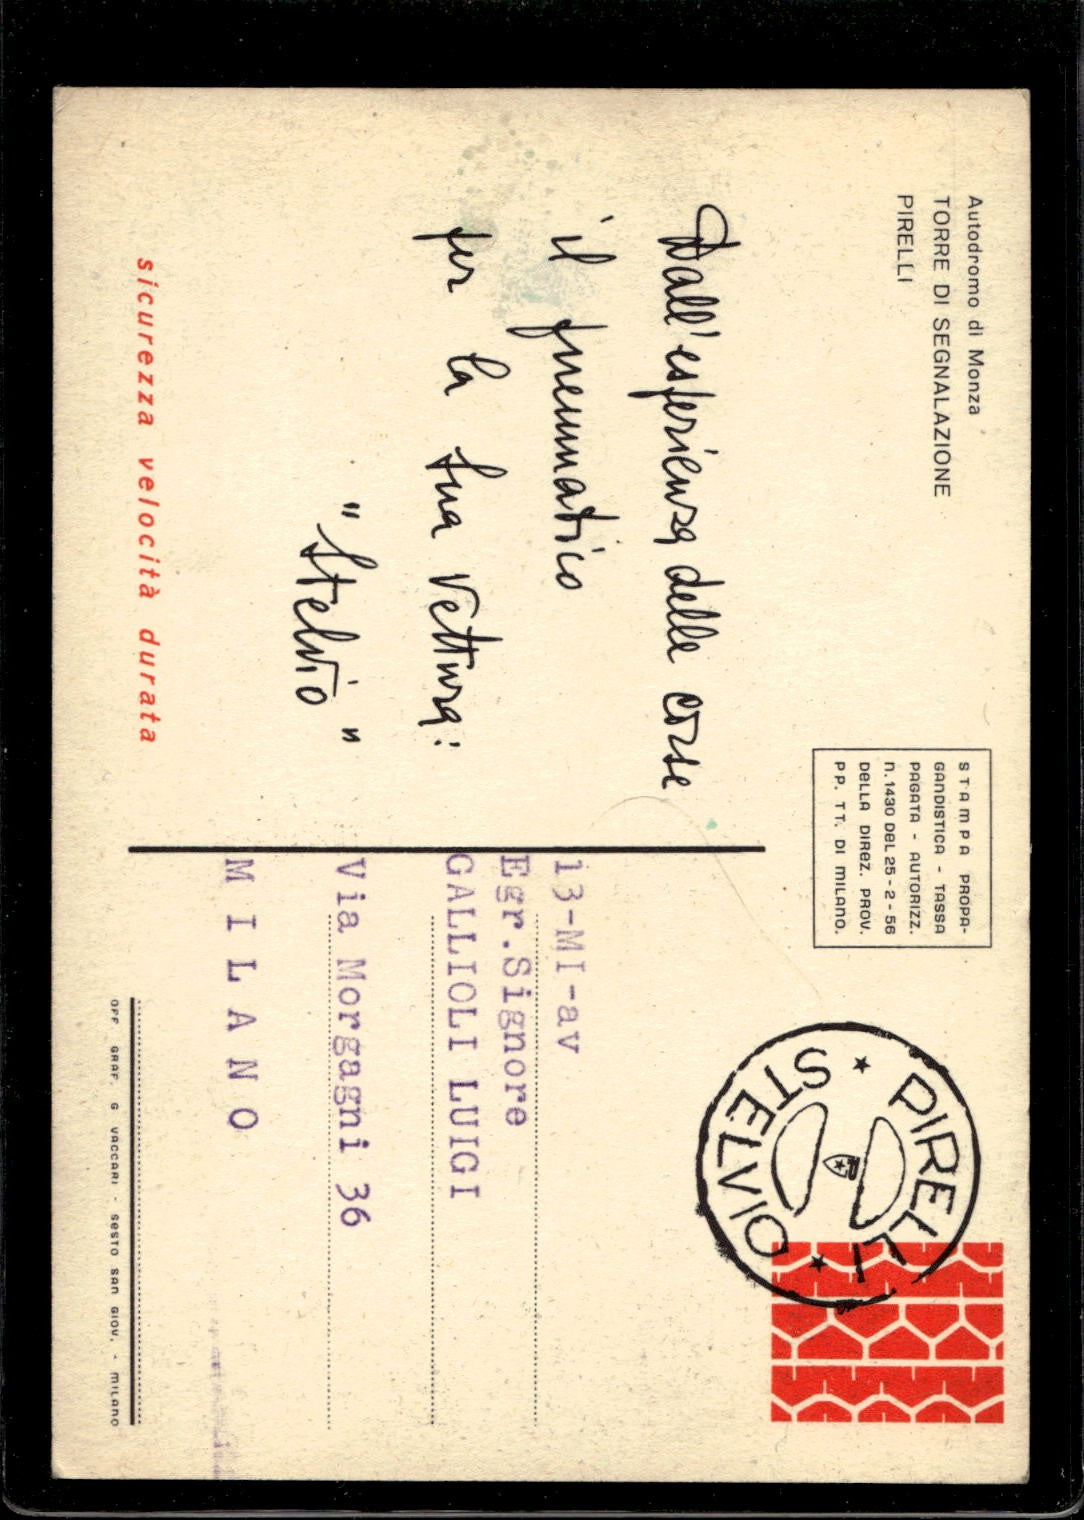 Autodromo di Monza
TORRE DI SEGNALAZIONE
PIRELLI
STAMPA PROPA-
GANDISTICA - TASSA
PAGATA - AUTORIZZ.
n. 1430 DEL 25 - 2 - 56
DELLA DIREZ. PROV.
PP. TT. DI MILANO.
PIRELLI
STELVIO
Dall'esperienza delle corse
il pneumatico
per la Sua vettura:
"Stelvio"
sicurezza velocità durata
13-MI-av
Egr.Signore
GALLIOLI LUIGI
Via Morgagni 36
M I L A N O
OFF. GRAF. G VACCARI - SESTO SAN GIOV. - MILANO